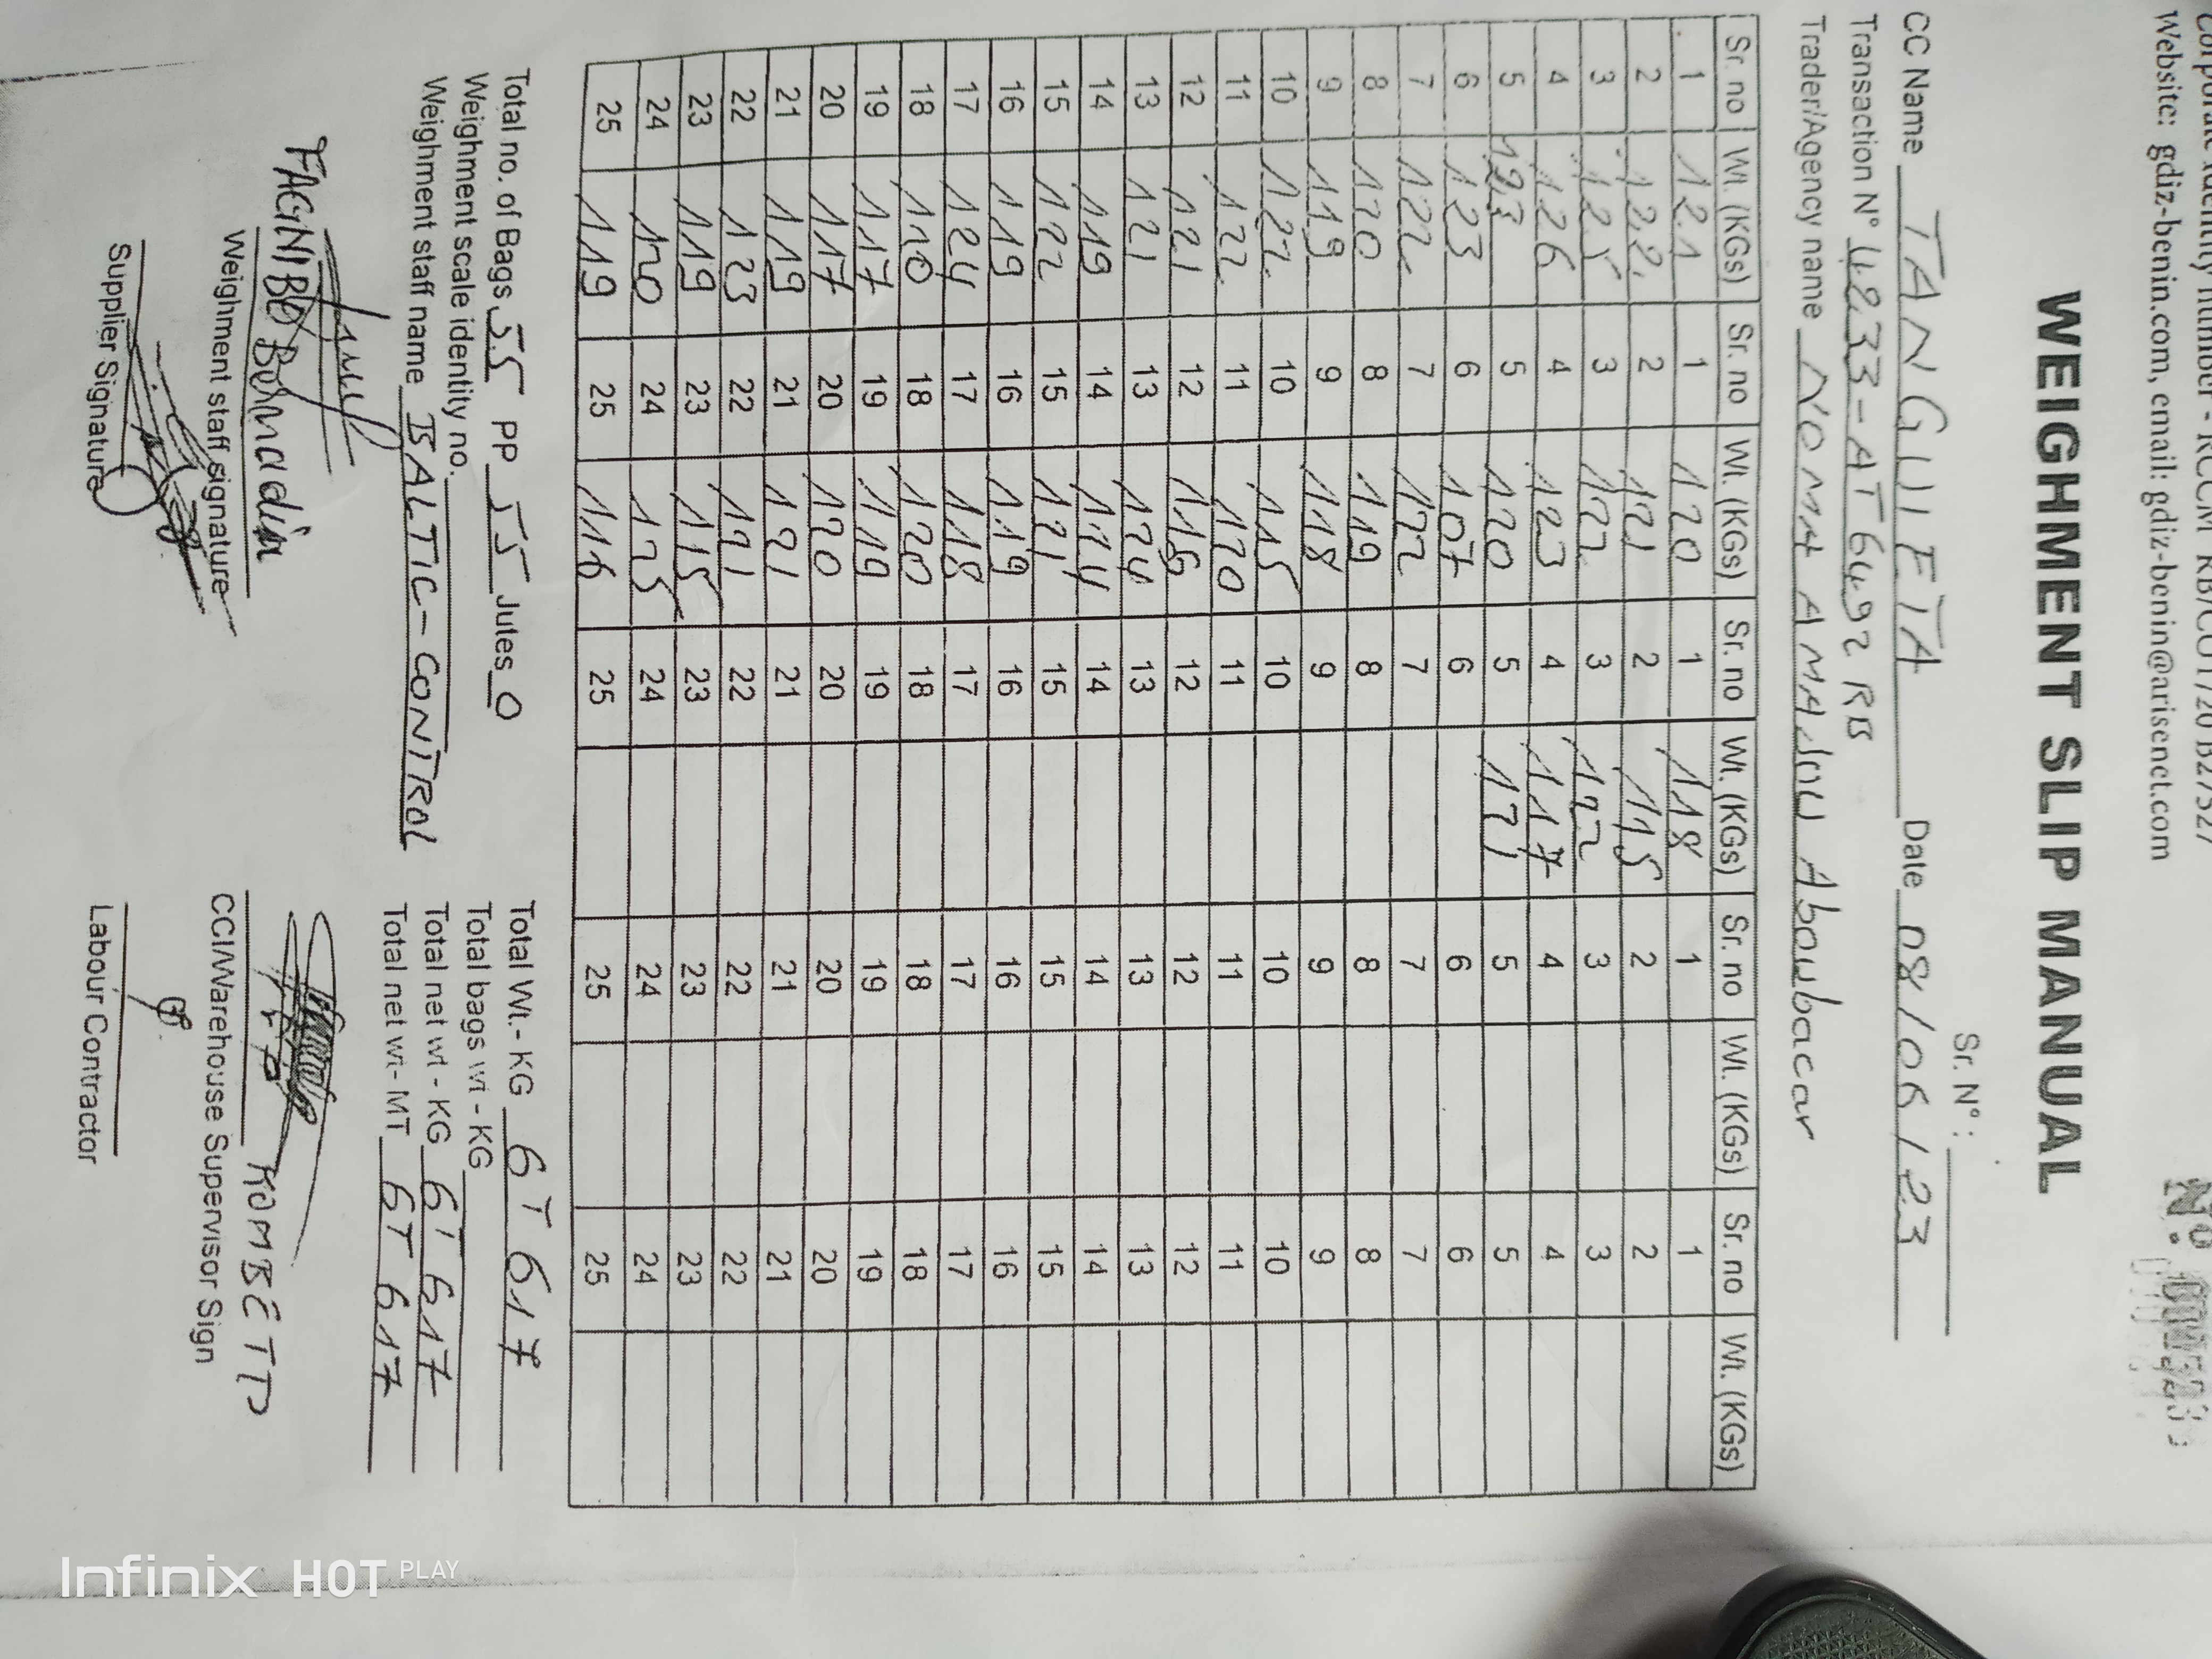 Website: gdiz-benin.com, email: gdiz-benin@arisenet.com
WEIGHMENT SLIP MANUAL
Sr. N° :
CC Name TANGUIETA Date 08/06/23
Transaction N° 4233-AT6492 RB
Trader/Agency name NOMA AMAdou Aboubacar
Sr. no Wt. (KGs) Sr. no Wt. (KGs) Sr. no Wt. (KGs) Sr. no Wt. (KGs) Sr. no Wt. (KGs)
1 121 1 120 1 118 1 1
2 122 2 121 2 115 2 2
3 125 3 122 3 122 3 3
4 126 4 123 4 117 4 4
5 123 5 120 5 121 5 5
6 123 6 107 6 6 6
7 122 7 122 7 7 7
8 120 8 119 8 8 8
9 119 9 118 9 9 9
10 122 10 115 10 10 10
11 122 11 120 11 11 11
12 121 12 116 12 12 12
13 121 13 124 13 13 13
14 119 14 114 14 14 14
15 122 15 121 15 15 15
16 119 16 119 16 16 16
17 124 17 118 17 17 17
18 120 18 120 18 18 18
19 117 19 119 19 19 19
20 117 20 120 20 20 20
21 119 21 121 21 21 21
22 123 22 121 22 22 22
23 119 23 115 23 23 23
24 120 24 125 24 24 24
25 119 25 116 25 25 25
Total no. of Bags 55 PP 55 Jutes 0 Total Wt.- KG 6T 617
Weighment scale identity no. Total bags wt - KG
Weighment staff name BALTIC-CONTROL Total net wt - KG 6T 617
Total net wt- MT 6T 617
FAGNIBO Bernadin
KOMBETTO
Weighment staff signature CCI/Warehouse Supervisor Sign
Supplier Signature Labour Contractor
Infinix HOT PLAY